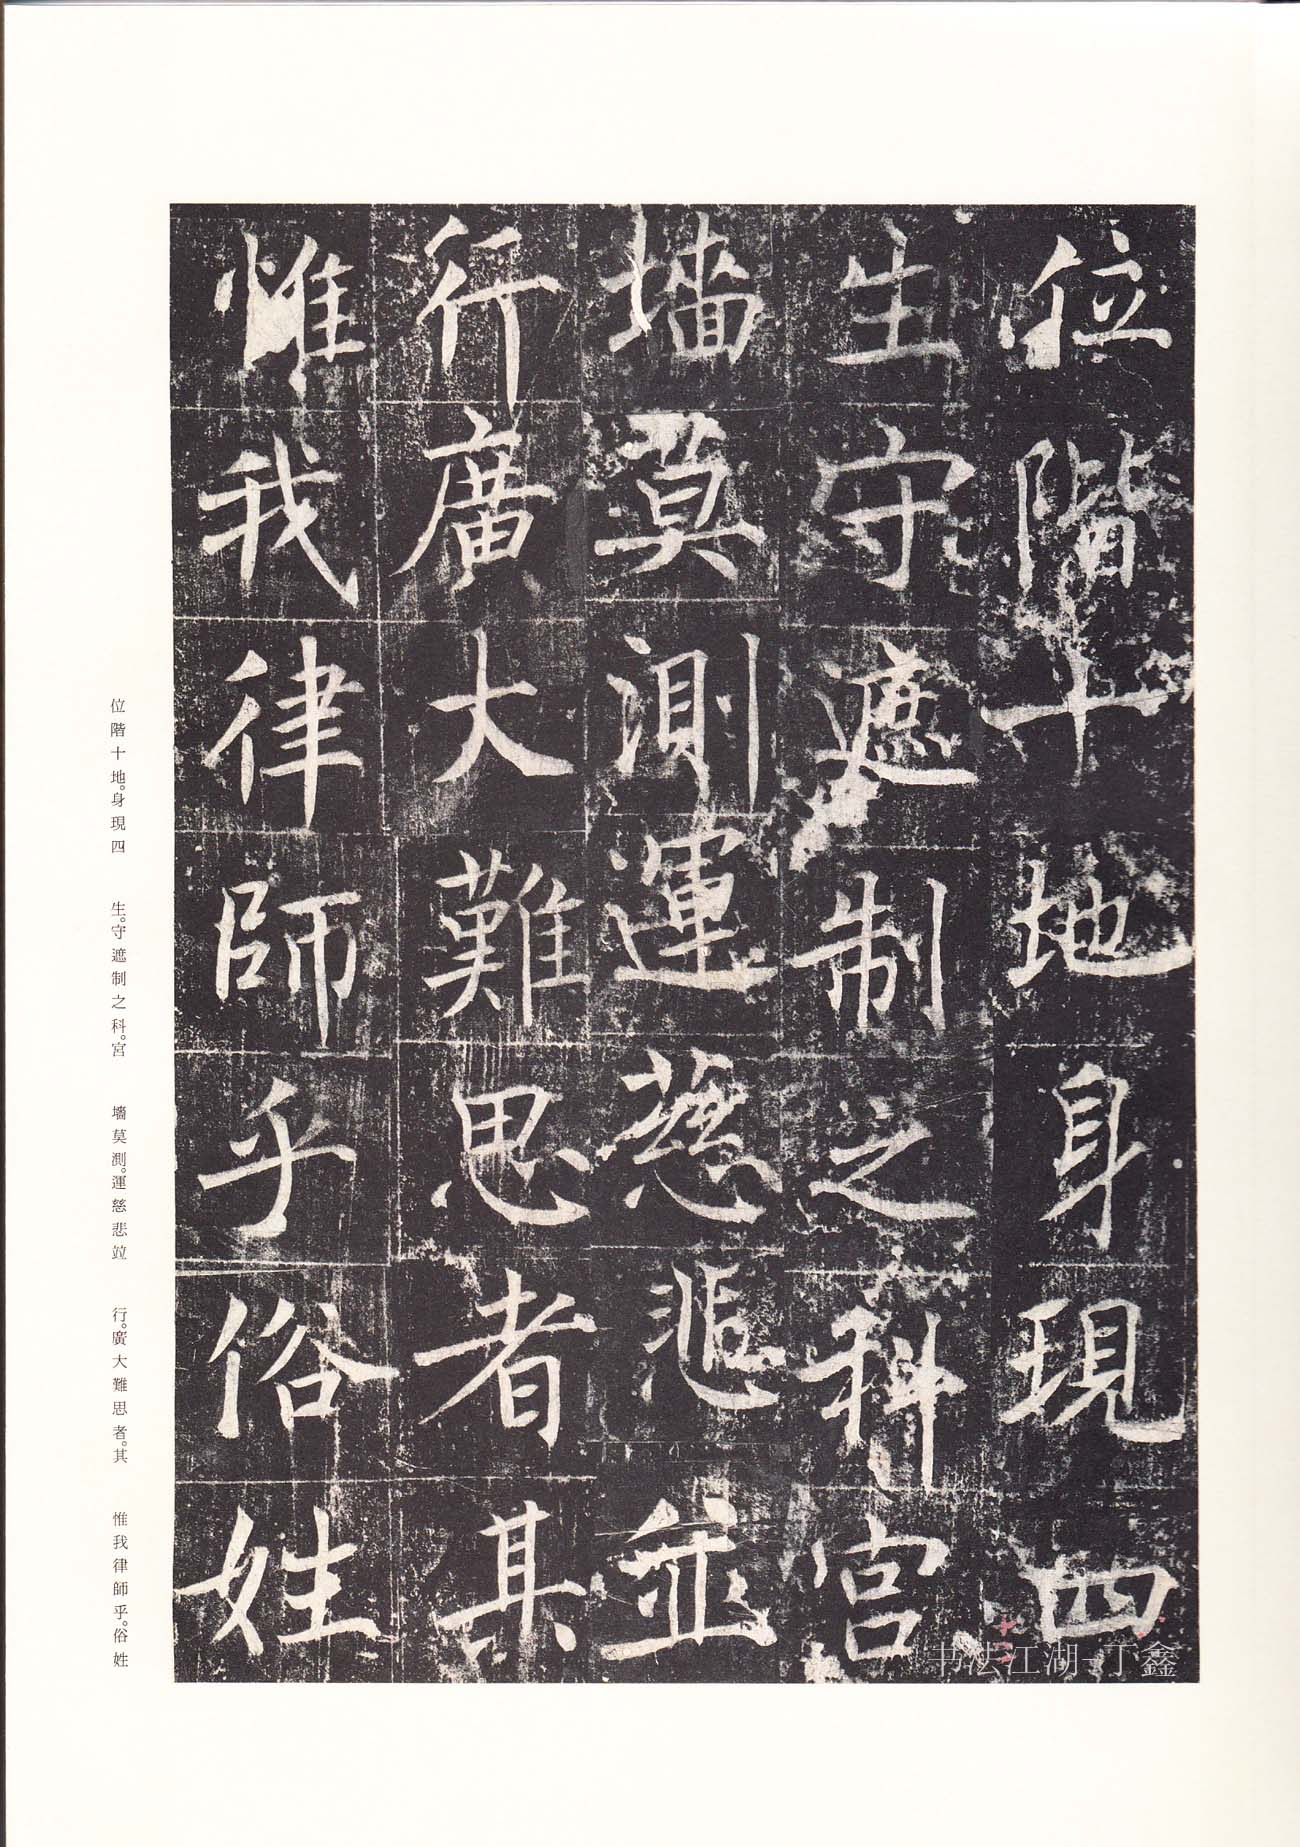 位階十地身現四
生守遮制之科宮
墻莫測運慈悲竝
行廣大難思者其
惟我律師乎俗姓
位階十地。身現四　生。守遮制之科。宮　墻莫測。運慈悲竝　行。廣大難思者。其　惟我律師乎。俗姓
书法江湖-丁鑫